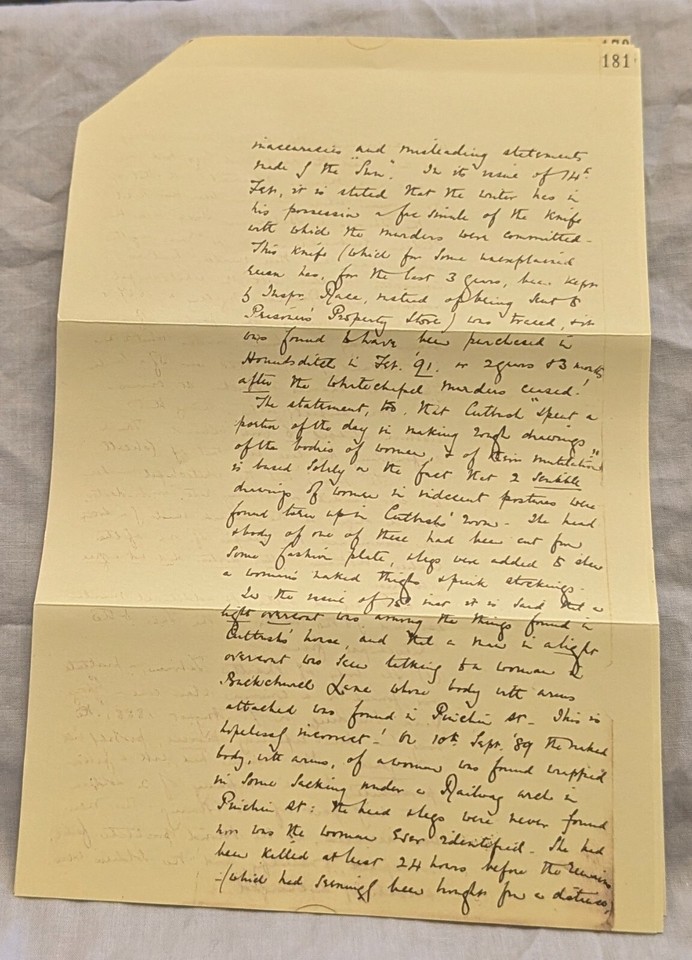 181
inaccuracies and misleading statements
made by the "Sun". In its issue of 14th
Feb, it is stated that the writer has in
his possession a fac simile of the knife
with which the murders were committed.
This knife (which for some unexplained
reason has, for the last 3 years, been kept
by Inspr. Race, instead of being sent to
Prisoners' Property Store) was traced, & it
was found to have been purchased in
Houndsditch in Feb. '91. or 2 years & 3 months
after the Whitechapel murders ceased!
The statement, too, that Cutbush "spent a
portion of the day in making rough drawings
of the bodies of women, & of their mutilations"
is based solely on the fact that 2 scribble
drawings of women in indecent postures were
found torn up in Cutbush's room. The head
& body of one of these had been cut from
some fashion plate, & legs were added to shew
a woman's naked thighs & pink stockings.
In the issue of 15th inst it is said that a
light overcoat was among the things found in
Cutbush's house, and that a man in a light
overcoat was seen talking to a woman in
Backchurch Lane whose body with arms
attached was found in Pinchin St. This is
hopelessly incorrect! On 10th Sept. '89 the naked
body, with arms, of a woman was found wrapped
in some sacking under a Railway arch in
Pinchin St: the head & legs were never found
nor was the woman ever identified. She had
been killed at least 24 hours before the remains
(which had seemingly been brought from a distance,